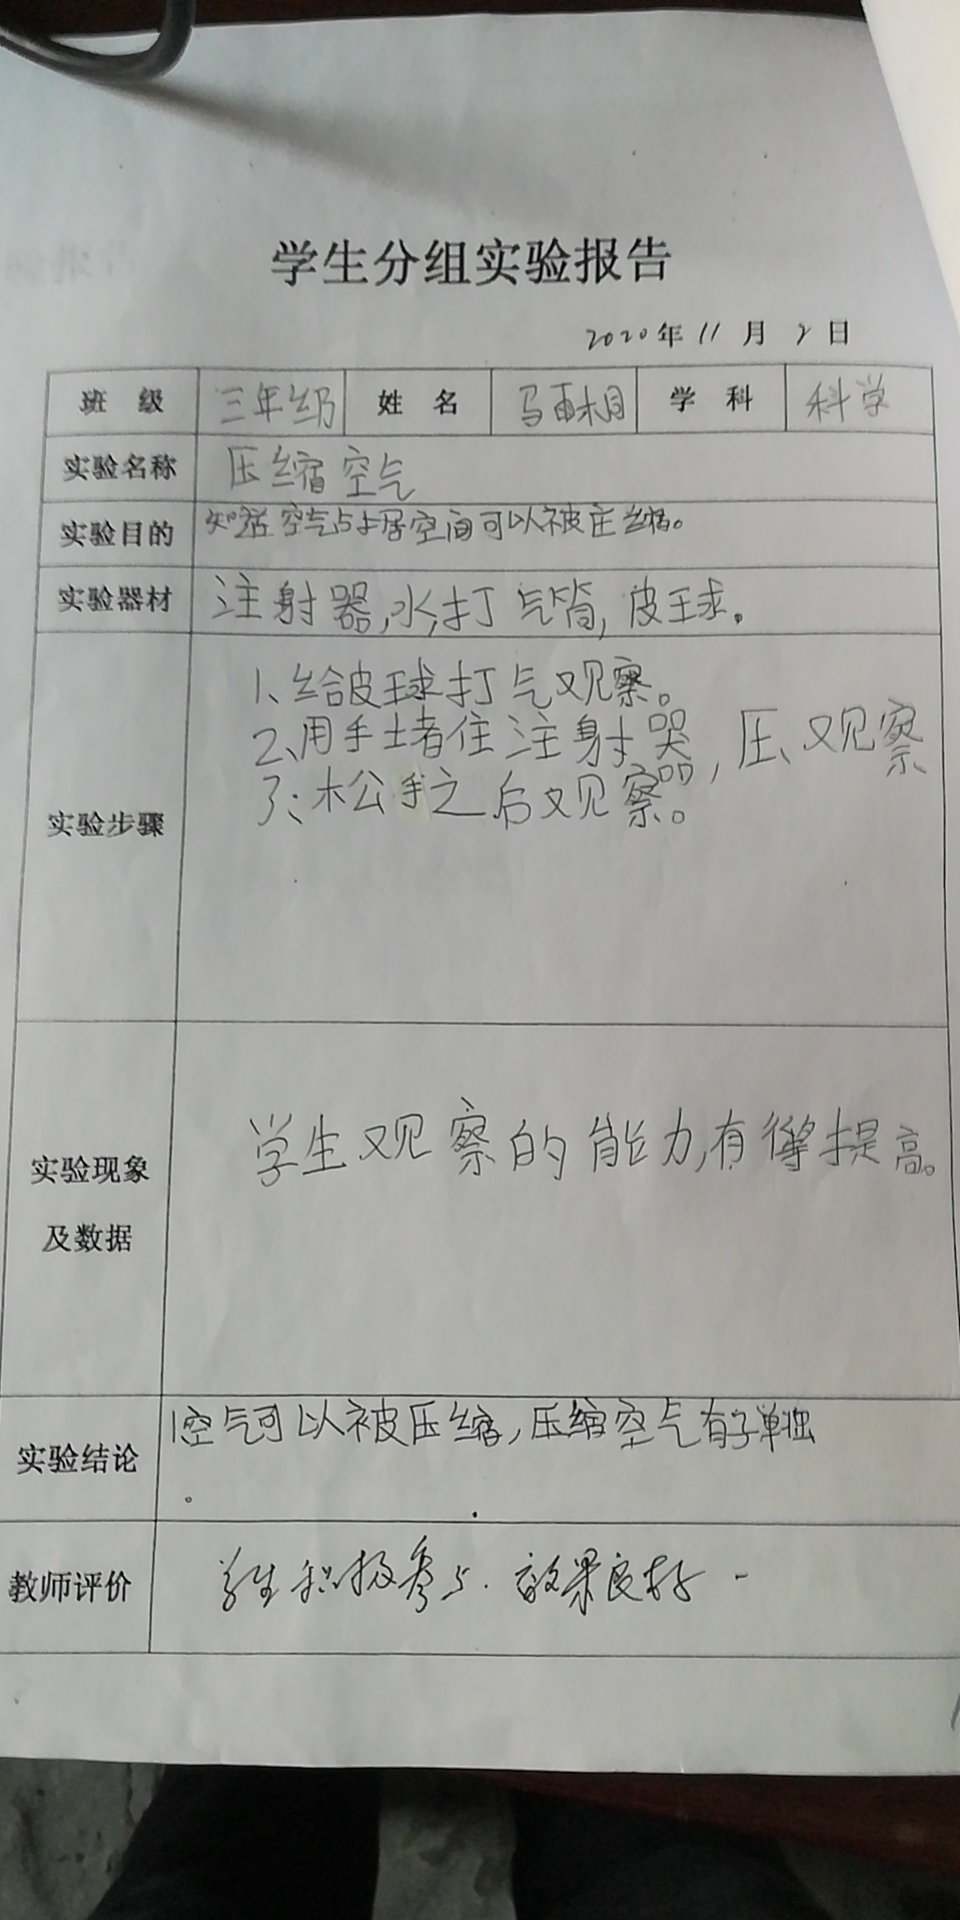 学生分组实验报告
2020年 11 月 2 日
班 级 三年级 姓 名 马 学 科 科学
实验名称 压缩空气
实验目的 空气占据空间可以被压缩。
实验器材 注射器,水,打气筒,皮球。
1、给皮球打气观察。
2、用手堵住注射器,压、观察
实验步骤
3、松手之后观察。
学生观察的能力,有得提高。
实验现象
及数据
实验结论 1空气可以被压缩,压缩空气有
。
教师评价 学生积极参与. 效果良好